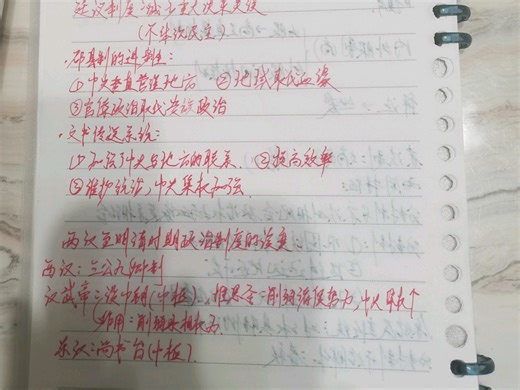 廷议制度:减少重大决策失误
·郡县制的进步性:
①中央垂直管理地方 ②地域取代血缘
③官僚政治取代贵族政治
·文书传递系统:
①加密了中央与地方的联系 ②提高效率
③维护统治,中央集权加强.
两汉至明清时期政治制度的演变.
西汉:三公九卿制
汉武帝:设中朝(中枢), 推恩令:削弱诸侯势力,中央集权↑
作用:削弱丞相权力
东汉:尚书台(中枢).